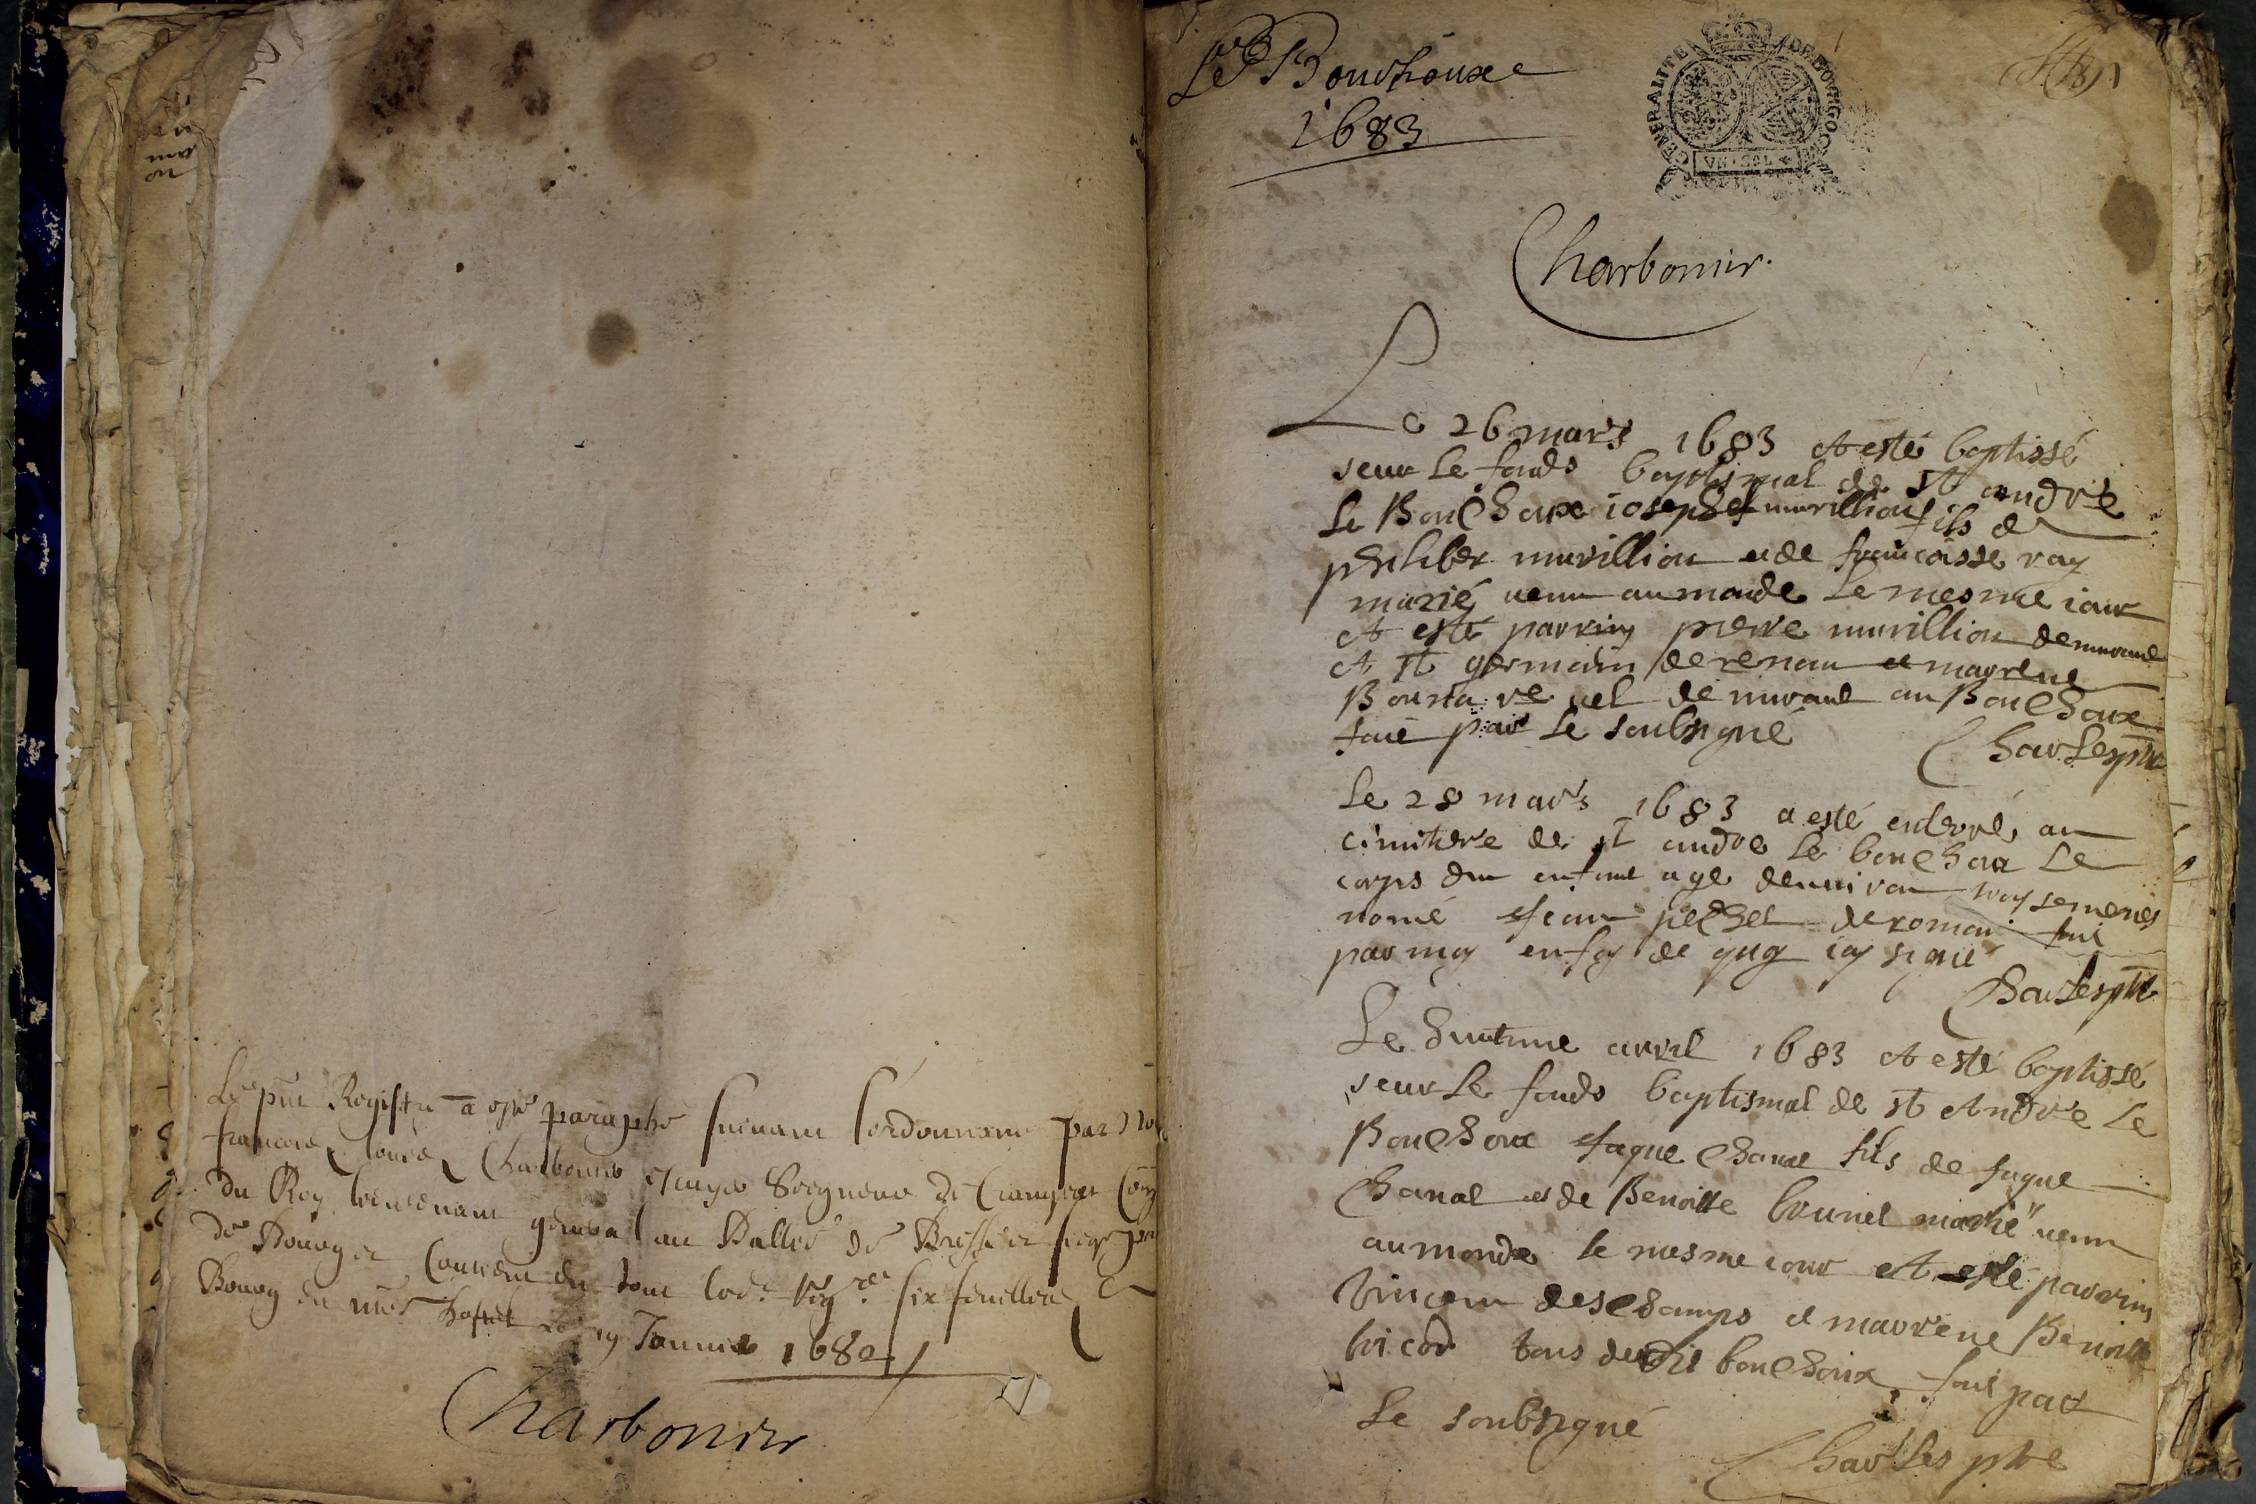 Le pnt Registre a esté paraphé suivant lordonnance par Nous
francois louis Charbonier escuyer Seigneur de
du Roy lieutenant general au Balliage de Bresse et siege
de Bourg et Contient en tout led. Reg.re six feuillets
Bourg en nre hostel Janvier 1682
Charbonier
Le Bouchoux
1683
GENERALITE DE BOVRGOGNE
VN SOL
Charbonier.
Le 26 mars 1683 A esté baptissé
seur Le fonds baptismal de st andre
Le Bouchoux ioseph murillion fils de
philiber murillion et de francoisse ray
marié venu au monde Le mesme iour
A esté parrin pierre murillion demurant
A st germain de renon et marrene
vel demurant au Bouchoux
fait par Le soubsigné
Charles ptre
Le 28 mars 1683 a esté enterré au
cimitere de st andre Le bouchoux Le
corps dun enfant agé denviron troy semenes
nomé Jean pechet de romain fait
par moy en foy de quoy iay signé
Charles ptre
Le huitime avril 1683 A esté baptissé
seur Le fonds baptismal de st Andre Le
Bouchoux Jaque Chanal fils de Jaque
Chanal et de Benoitte brunet marié venu
au monde le mesme iour et A esté parrin
Vincent deschamps et marrene Benoitte
bicod tous dudit bouchoux fait par
Le soubsigné
Charles ptre